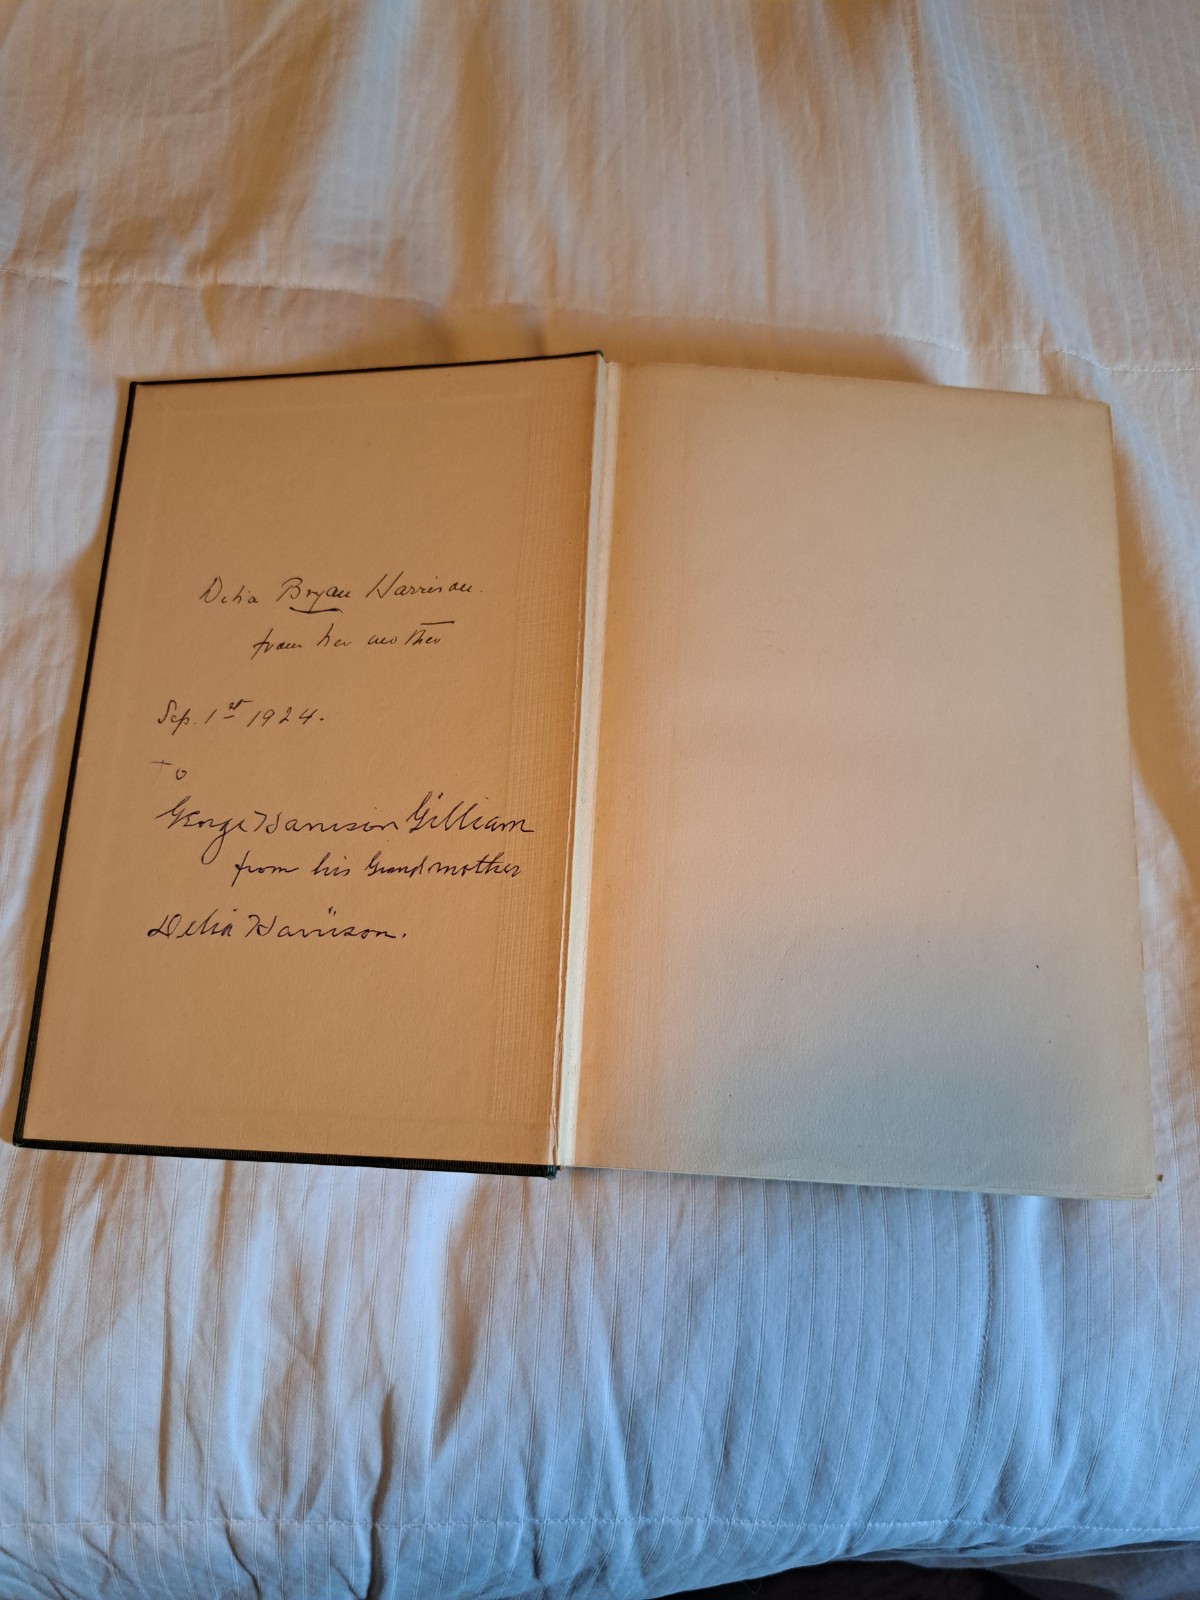 Delia Bryan Harrison.
from her mother
Sep. 1st 1924.
To
George Harrison Gilliam
from his Grandmother
Delia Harrison.